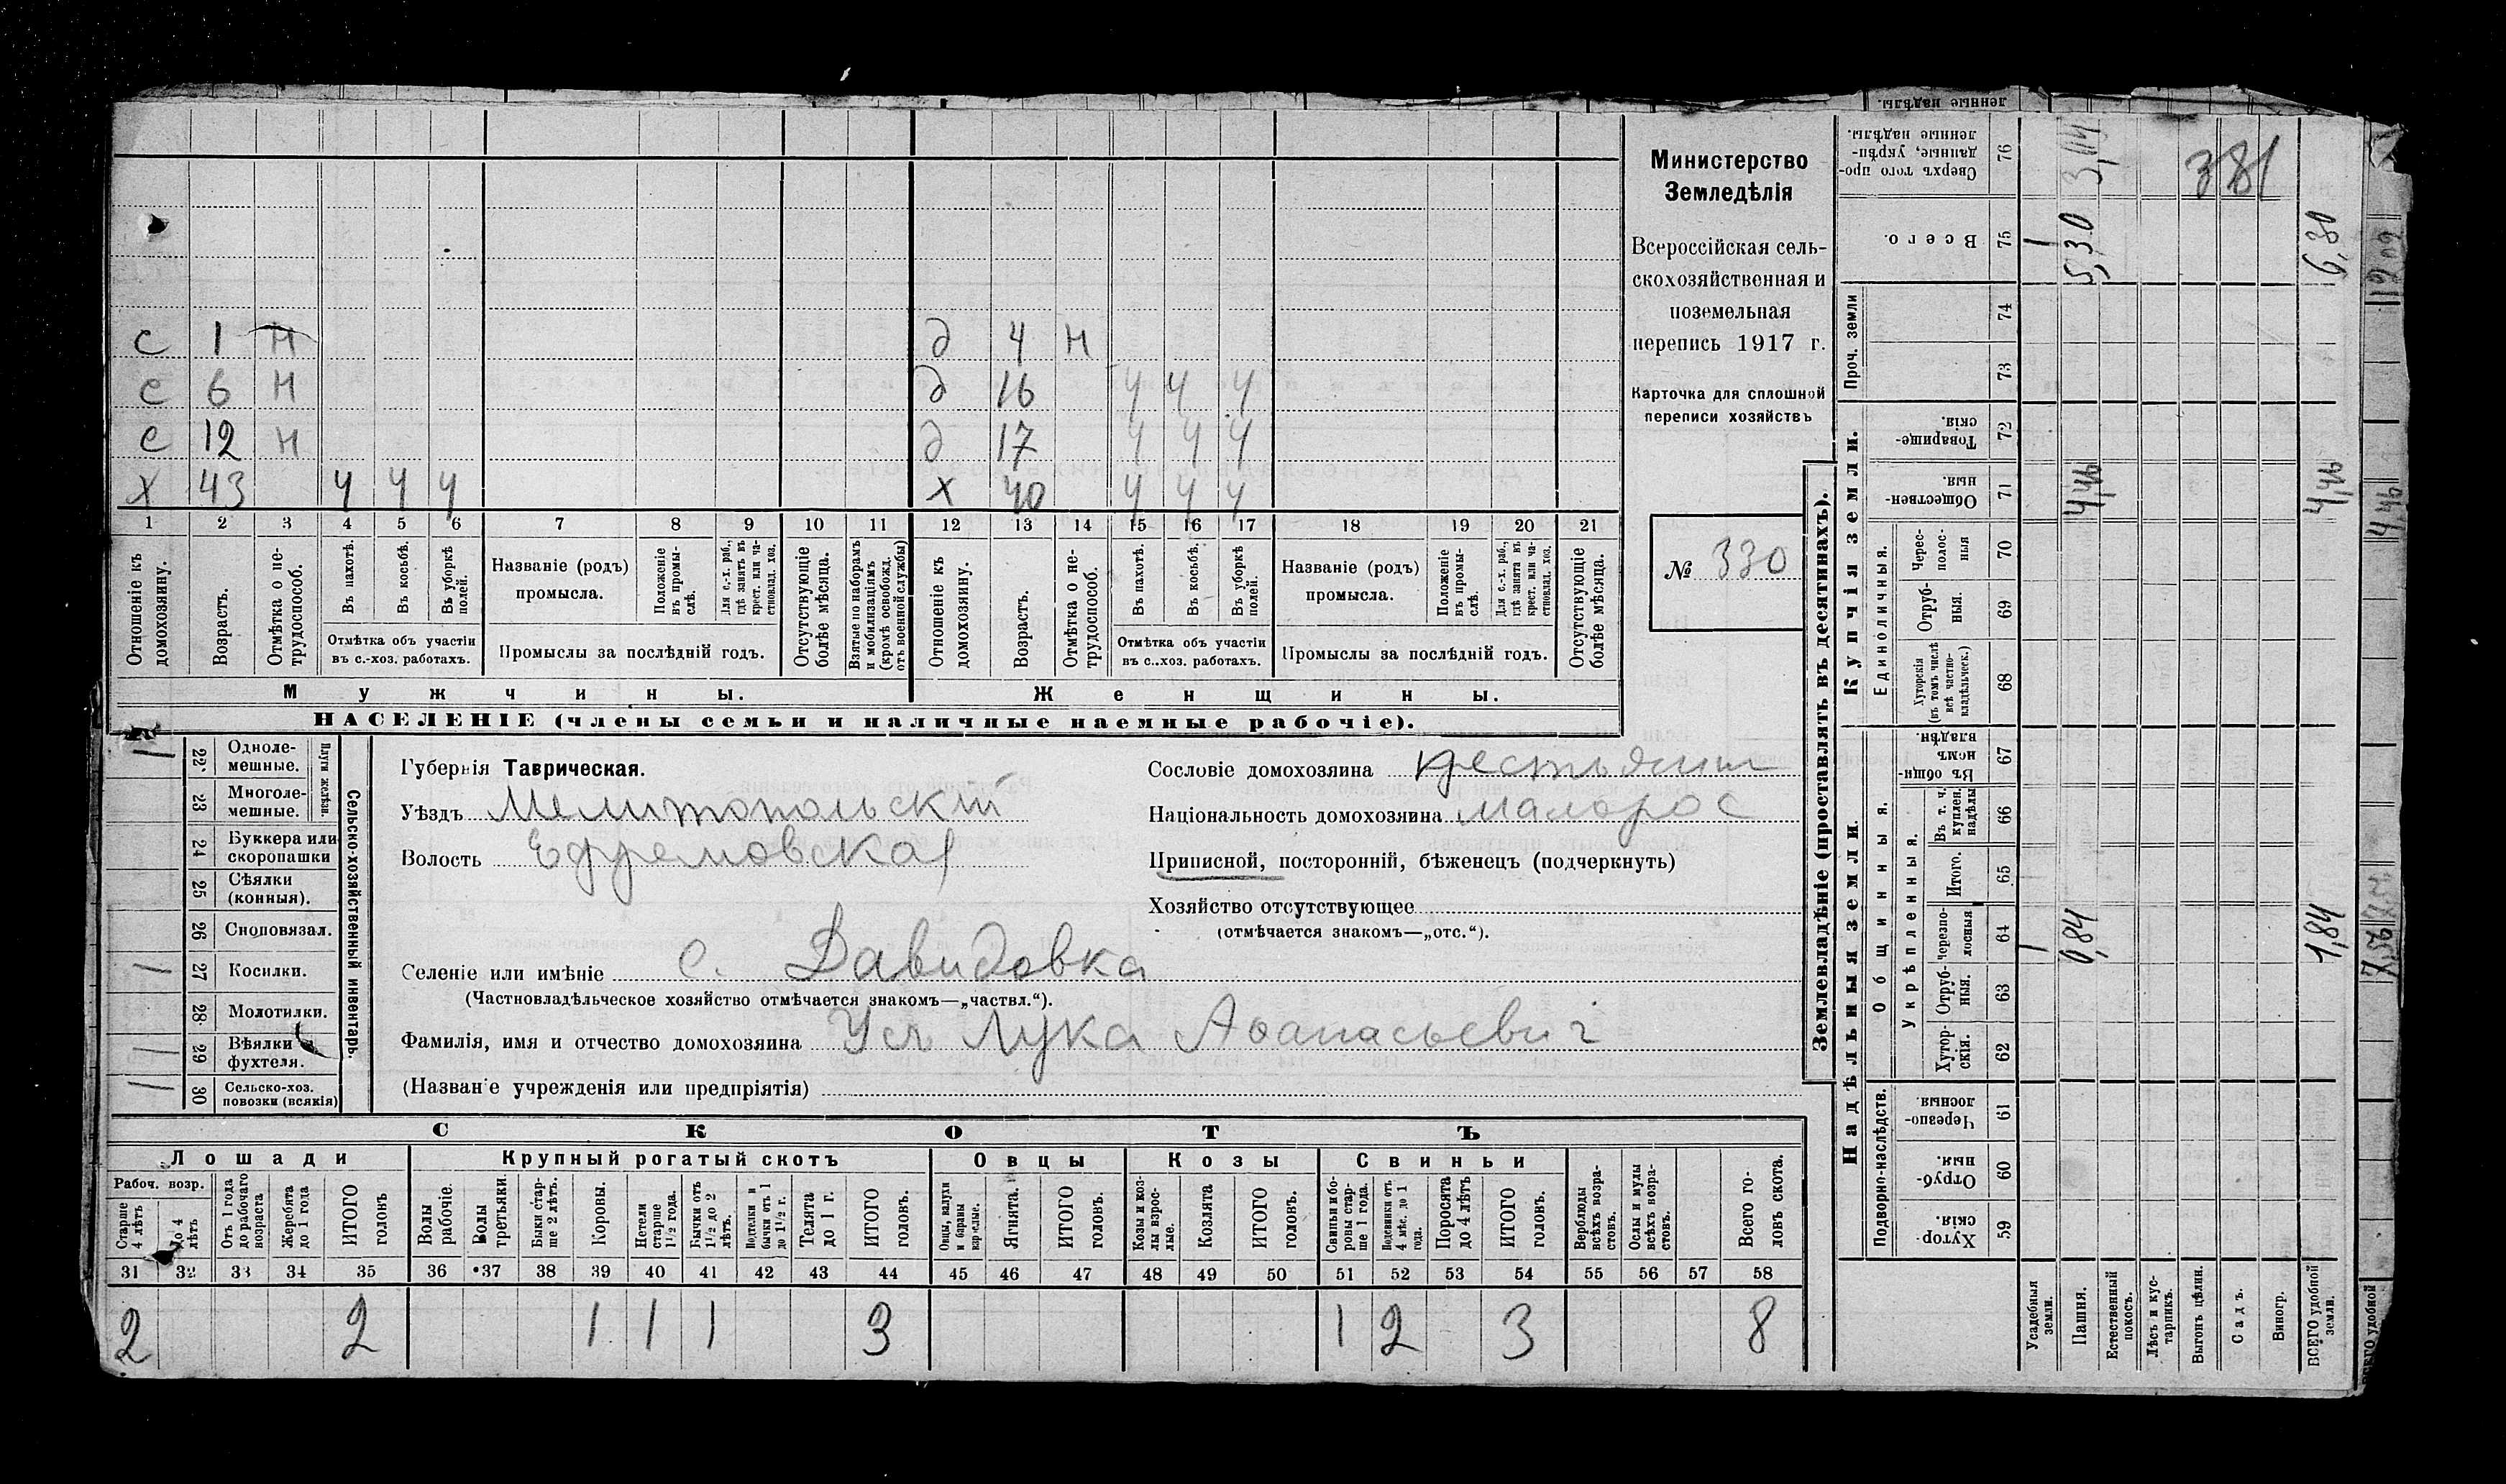 Министерство
Земледѣлія
Всероссійская сель-
скохозяйственная и
поземельная
перепись 1917 г.
Карточка для сплошной
переписи хозяйствъ
№ 330
с 1 н д 4 н
с 6 н д 16 ч ч ч
с 12 н д 17 ч ч ч
х 43 ч ч ч х 40 ч ч ч
1 2 3 4 5 6 7 8 9 10 11 12 13 14 15 16 17 18 19 20 21
Отношеніе къ домохозяину.
Возрастъ.
Отмѣтка о не-трудоспособ.
Въ пахотѣ.
Въ косьбѣ.
Въ уборкѣ полей.
Отмѣтка объ участіи
въ с.-хоз. работахъ.
Названіе (родъ)
промысла.
Положеніе въ промы-слѣ.
Для с.-х. раб., гдѣ занятъ въ крест. или ча-стновлад. хоз.
Промыслы за послѣдній годъ.
Отсутствующіе болѣе мѣсяца.
Взятые по наборамъ и мобилизаціямъ (кромѣ освобожд. отъ военной службы)
Отношеніе къ домохозяину.
Возрастъ.
Отмѣтка о не-трудоспособ.
Въ пахотѣ.
Въ косьбѣ.
Въ уборкѣ полей.
Отмѣтка объ участіи
въ с..хоз. работахъ.
Названіе (родъ)
промысла.
Положеніе въ промы-слѣ.
Для с.-х. раб., гдѣ занята въ крест. или ча-стновлад. хоз.
Промыслы за послѣдній годъ.
Отсутствующіе болѣе мѣсяца.
Мужчины. Женщины.
НАСЕЛЕНІЕ (члены семьи и наличные наемные рабочіе).
Сельско-хозяйственный инвентарь.
Плуги желѣзн.
1 22 Одноле-
мешные.
23 Многоле-
мешные.
24 Буккера или
скоропашки
25 Сѣялки
(конныя).
26 Сноповязал.
1 27 Косилки.
28 Молотилки.
1 29 Вѣялки и
фухтеля.
1 30 Сельско-хоз.
повозки (всякія)
Губернія Таврическая.
Уѣздъ Мелитопольскій
Волость Ефремовская
Селеніе или имѣніе с. Давидовка
(Частновладѣльческое хозяйство отмѣчается знакомъ—„частвл.“).
Фамилія, имя и отчество домохозяина Лука
(Названіе учрежденія или предпріятія)
Сословіе домохозяина крестьянин
Національность домохозяина малорос
Приписной, посторонній, бѣженецъ (подчеркнуть)
Хозяйство отсутствующее
(отмѣчается знакомъ—„отс.“).
СКОТЪ
Лошади Крупный рогатый скотъ Овцы Козы Свиньи
Рабоч. возр.
Старше 4 лѣтъ
до 4 лѣтъ
Отъ 1 года до рабочаго возраста
Жеребята до 1 года
ИТОГО головъ
Волы рабочіе.
Волы третьяки.
Быки стар-ше 2 лѣтъ.
Коровы.
Нетели старше 1½ года.
Бычки отъ 1½ до 2 лѣтъ.
Подтелки и бычки отъ 1 до 1½ г.
Телята до 1 г.
ИТОГО головъ.
Овцы, валухи и бараны взрослые.
Ягнята.
ИТОГО головъ.
Козы и коз-лы взрос-лые.
Козлята
ИТОГО головъ.
Свиньи и бо-ровы стар-ше 1 года.
Подсвинки отъ 4 мѣс. до 1 года.
Поросята до 4 лѣтъ
ИТОГО головъ.
Верблюды всѣхъ возра-стовъ.
Ослы и мулы всѣхъ возра-стовъ.
Всего го-ловъ скота.
31 32 33 34 35 36 37 38 39 40 41 42 43 44 45 46 47 48 49 50 51 52 53 54 55 56 57 58
2 2 1 1 1 3 1 2 3 8
Землевладѣніе (проставлять въ десятинахъ).
Надѣльныя земли. Купчія земли. Проч. земли
Подворно-наслѣдств.
Общинныя.
Укрѣпленныя.
Единоличныя.
59 Хутор-скія.
60 Отруб-ныя.
61 Черезпо-лосныя
62 Хутор-скія.
63 Отруб-ныя.
64 Черезпо-лосныя 1 0,84 1,84
65 Итого.
66 Въ т. ч. куплен. надѣлы
67 Въ общин-номъ владѣн.
68 Хуторскія (въ томъ числѣ всѣ частно-владѣльческ.)
69 Отруб-ныя.
70 Черес-полос-ныя
71 Обществен-ныя. 4,46 4,46
72 Товарище-скія
73
74
75 Всего. 1 5,30 6,30
76 Сверхъ того про-данные, укрѣп-ленные надѣлы.
381
Усадебныя земли.
Пашня.
Естественный покосъ.
Лѣсъ и кус-тарникъ.
Выгонъ цѣлин.
Садъ.
Виногр.
ВСЕГО удобной земли.
4,46